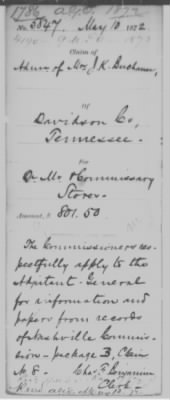 1786 A.G.O. 1872
No. 3847. May 10 1872.
Claim of
Admr. of Mrs J. K. Buchanan,
Of
Davidson Co,
Tennessee.
For
Qr. Mr. & Commissary
Stores.
Amount, $ 801.50
The Commissioners res-
pectfully apply to the
Adjutant-General
for information and
papers from records
of Nashville Commis-
sion - package B, Claim
No 8. - Chas. F. Benjamin
Clerk.